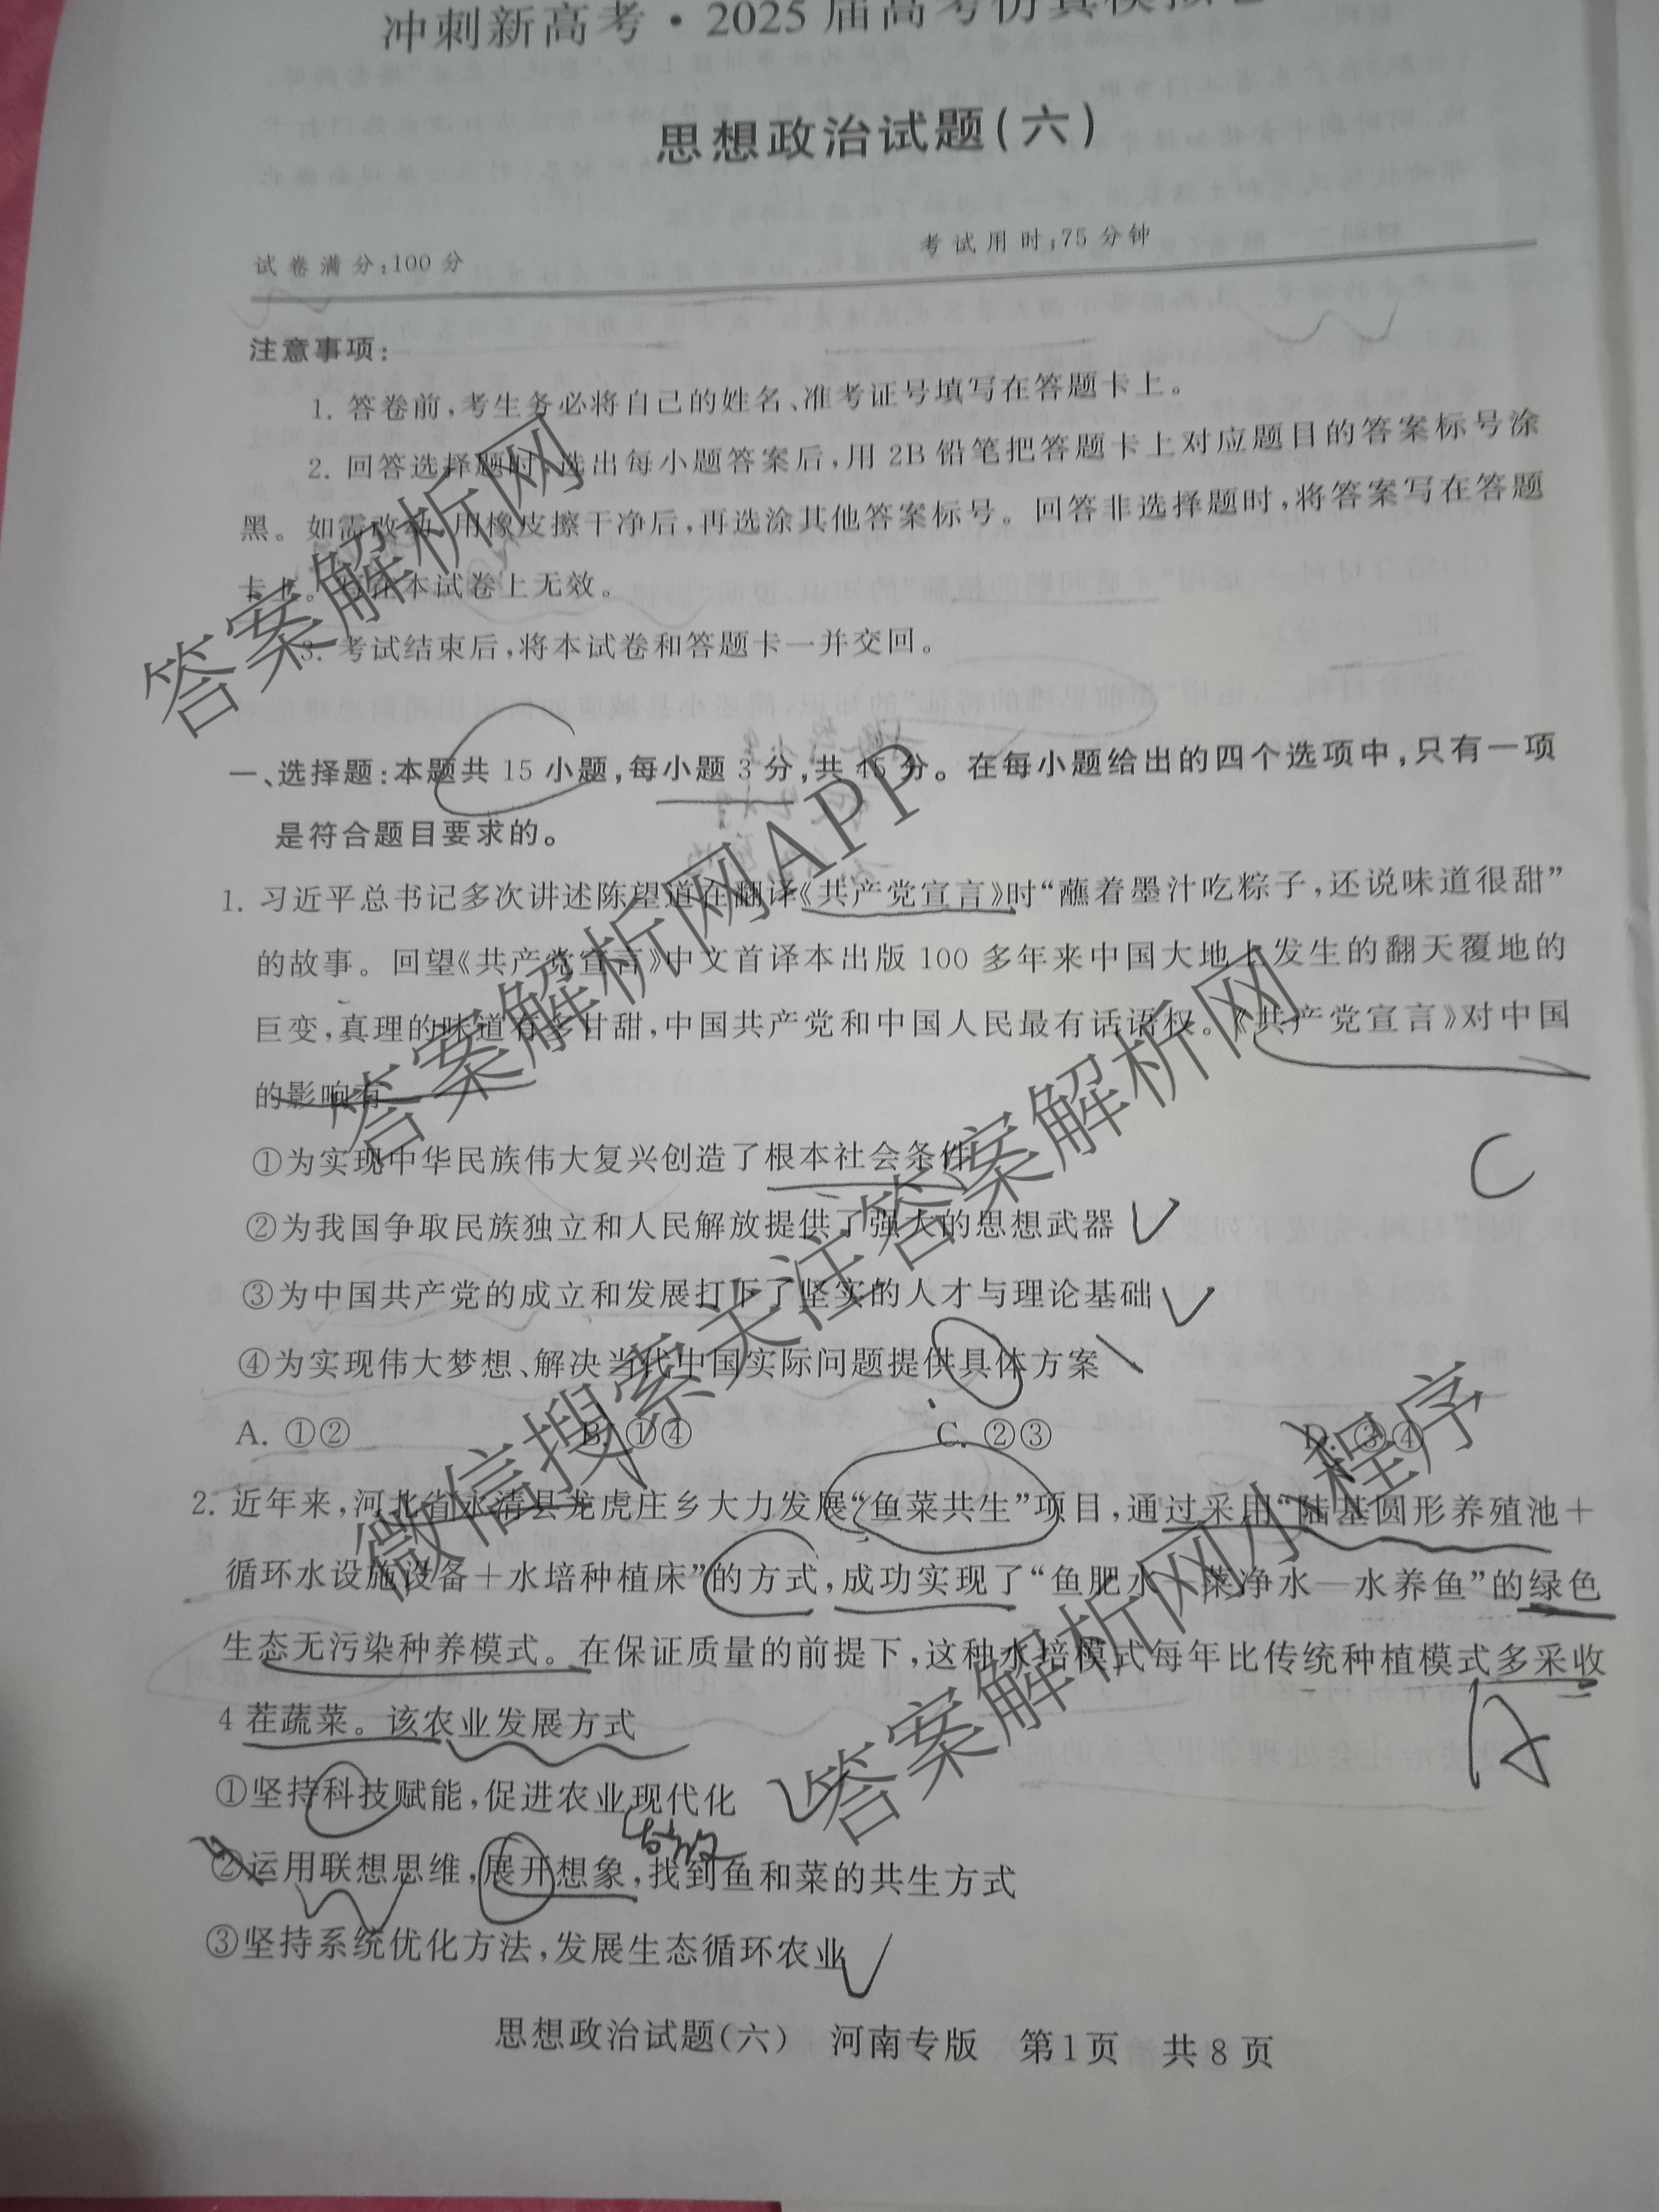 冲刺新高考·2025届高考仿真模拟卷
思想政治试题(六)
试卷满分:100分
考试用时:75分钟
注意事项:
1. 答卷前,考生务必将自己的姓名、准考证号填写在答题卡上。
2. 回答选择题时,选出每小题答案后,用2B铅笔把答题卡上对应题目的答案标号涂
黑。如需改动,用橡皮擦干净后,再选涂其他答案标号。回答非选择题时,将答案写在答题
卡上。写在本试卷上无效。
3. 考试结束后,将本试卷和答题卡一并交回。
一、选择题:本题共15小题,每小题3分,共45分。在每小题给出的四个选项中,只有一项
是符合题目要求的。
1. 习近平总书记多次讲述陈望道在翻译《共产党宣言》时“蘸着墨汁吃粽子,还说味道很甜”
的故事。回望《共产党宣言》中文首译本出版100多年来中国大地上发生的翻天覆地的
巨变,真理的味道有多甘甜,中国共产党和中国人民最有话语权。《共产党宣言》对中国
的影响有
①为实现中华民族伟大复兴创造了根本社会条件
C
②为我国争取民族独立和人民解放提供了强大的思想武器
③为中国共产党的成立和发展打下了坚实的人才与理论基础
④为实现伟大梦想、解决当代中国实际问题提供具体方案
A. ①② B. ①④ C. ②③ D. ③④
2. 近年来,河北省永清县龙虎庄乡大力发展“鱼菜共生”项目,通过采用“陆基圆形养殖池+
循环水设施设备+水培种植床”的方式,成功实现了“鱼肥水—菜净水—水养鱼”的绿色
生态无污染种养模式。在保证质量的前提下,这种水培模式每年比传统种植模式多采收
4茬蔬菜。该农业发展方式
A
①坚持科技赋能,促进农业现代化
②运用联想思维,展开想象,找到鱼和菜的共生方式
③坚持系统优化方法,发展生态循环农业
思想政治试题(六) 河南专版 第1页 共8页
答案解析网
答案解析网APP
微信搜索关注答案解析网
答案解析网小程序